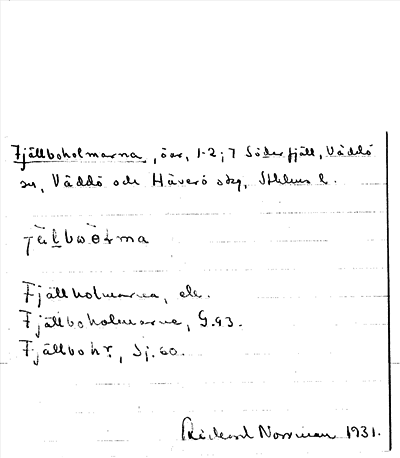 Fjällboholmarna, öar, 1-2; 7 Söderfjäll, Väddö
sn, Väddö och Häverö skg, Sthlms l.
Fjällholmarna, ek.
Fjällboholmarna, G.93.
Fjällbohr, Sj.60.
Rickard Norrman 1931.